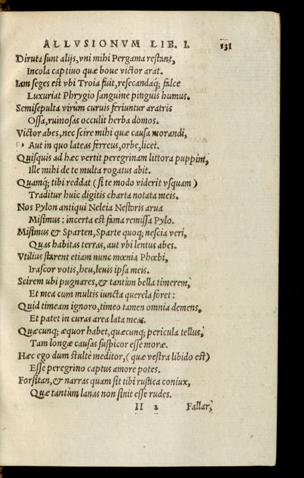 ALLUSIONUM LIB. I. 131
Diruta sunt alijs, uni mihi Pergama restant,
Incola captiuo quæ boue uictor arat.
Iam seges est ubi Troia fuit, resecandaq; falce
Luxuriat Phrygio sanguine pinguis humus.
Semisepulta uirum curuis feriuntur aratris
Ossa, ruinosas occulit herba domos.
Victor abes, nec scire mihi quæ causa morandi,
Aut in quo lateas ferreus, orbe, licet.
Quisquis ad hæc uertit peregrinam littora puppim,
Ille mihi de te multa rogatus abit.
Quamq; tibi reddat (si te modo uiderit usquam)
Traditur huic digitis charta notata meis.
Nos Pylon antiqui Neleia Nestoris arua
Misimus: incerta est fama remissa Pylo.
Misimus & Sparten, Sparte quoq; nescia ueri,
Quas habitas terras, aut ubi lentus abes.
Vtilius starent etiam nunc mœnia Phœbi,
Irascor uotis, heu, leuis ipsa meis.
Scirem ubi pugnares, & tantum bella timerem,
Et mea cum multis iuncta querela foret:
Quid timeam ignoro, timeo tamen omnia demens,
Et patet in curas area lata meas.
Quæcunq; æquor habet, quæcunq; pericula tellus,
Tam longæ causas suspicor esse moræ.
Hæc ego dum stulte meditor, (quæ uestra libido est)
Esse peregrino captus amore potes.
Forsitan, & narras quam sit tibi rustica coniux,
Quæ tantum lanas non sinit esse rudes.
II 2 Fallar,